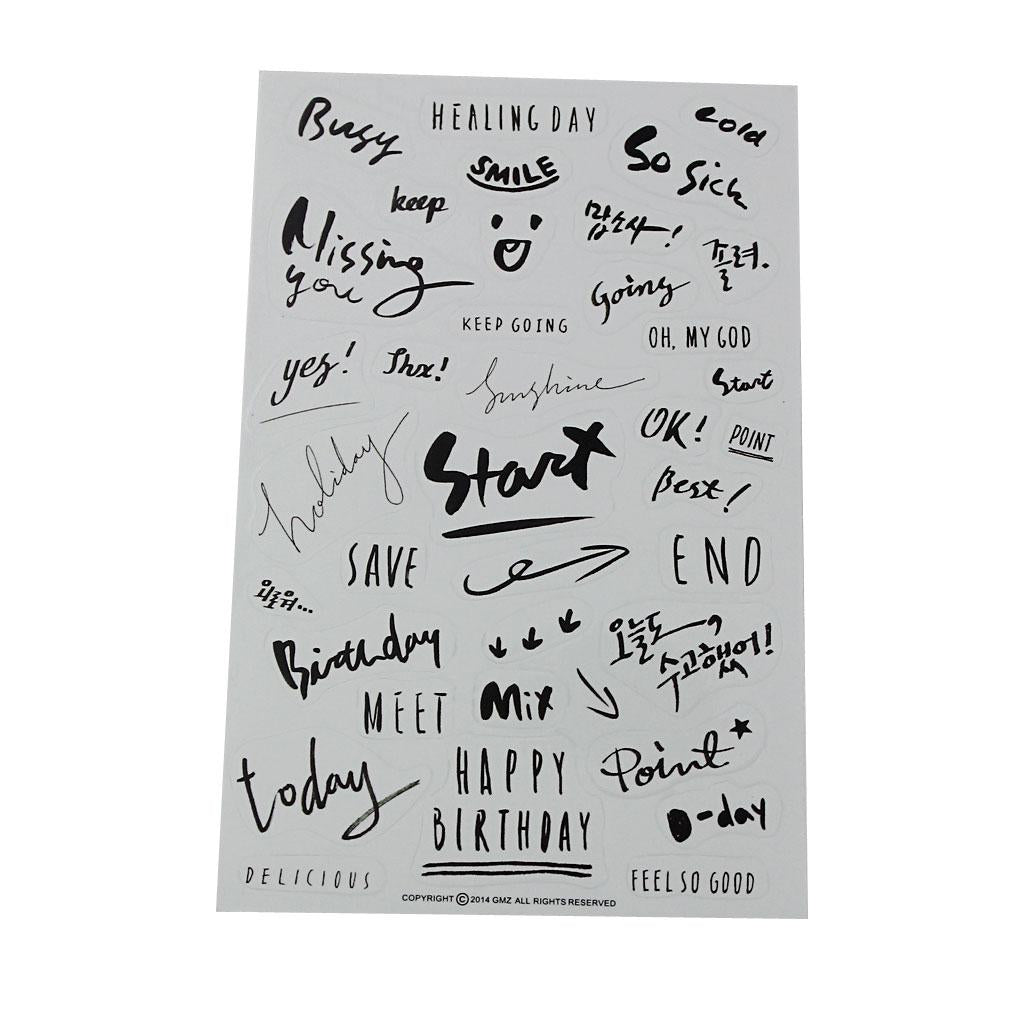 Busy
HEALING DAY
Cold
So Sick
SMILE
keep
맙소사~!
Missing
you
졸려.
Going
KEEP GOING
OH, MY GOD
yes!
Thx!
Sunshine
Start
OK!
POINT
holiday
Start
Best!
SAVE
END
Birthday
오늘도
수고했어!
MEET
Mix
today
HAPPY
BIRTHDAY
Point
D-day
DELICIOUS
FEEL SO GOOD
COPYRIGHT © 2014 GMZ ALL RIGHTS RESERVED